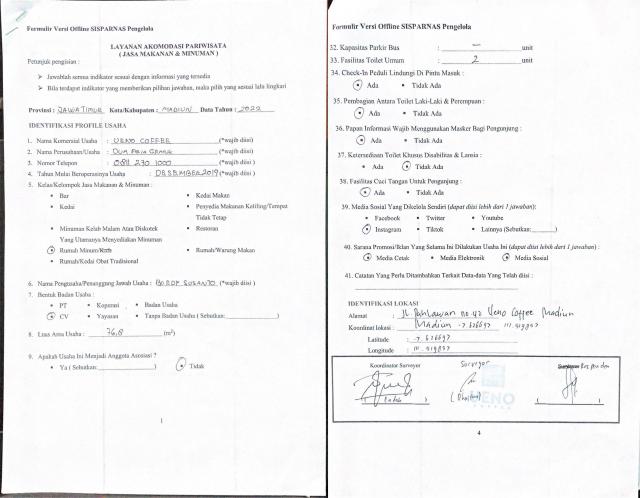 Formulir Versi Offline SISPARNAS Pengelola
LAYANAN AKOMODASI PARIWISATA
( JASA MAKANAN & MINUMAN )
Petunjuk pengisian :
➢ Jawablah semua indikator sesuai dengan informasi yang tersedia
➢ Bila terdapat indikator yang memberikan pilihan jawaban, maka pilih yang sesuai lalu lingkari
Provinsi : JAWA TIMUR Kota/Kabupaten : MADIUN Data Tahun : 2022
IDENTIFIKASI PROFILE USAHA
1. Nama Komersial Usaha : UENO COFFEE (*wajib diisi)
2. Nama Perusahaan/Usaha : (*wajib diisi )
3. Nomor Telepon : 0811 270 1000 (*wajib diisi )
4. Tahun Mulai Beroperasinya Usaha : DESEMBER 2019 (*wajib diisi )
5. Kelas/Kelompok Jasa Makanan & Minuman :
• Bar • Kedai Makan
• Kedai • Penyedia Makanan Keliling/Tempat
Tidak Tetap
• Minuman Kelab Malam Atau Diskotek • Restoran
Yang Utamanya Menyediakan Minuman
• Rumah Minum/Kafe • Rumah/Warung Makan
• Rumah/Kedai Obat Tradisional
6. Nama Pengusaha/Penanggung Jawab Usaha : SUSANTO (*wajib diisi )
7. Bentuk Badan Usaha :
• PT • Koperasi • Badan Usaha
• CV • Yayasan • Tanpa Badan Usaha ( Sebutkan: )
8. Luas Area Usaha : 76,8 (m²)
9. Apakah Usaha Ini Menjadi Anggota Asosiasi ?
• Ya ( Sebutkan: ) • Tidak
1
Formulir Versi Offline SISPARNAS Pengelola
32. Kapasitas Parkir Bus : – unit
33. Fasilitas Toilet Umum : 2 unit
34. Check-In Peduli Lindungi Di Pintu Masuk :
• Ada • Tidak Ada
35. Pembagian Antara Toilet Laki-Laki & Perempuan :
• Ada • Tidak Ada
36. Papan Informasi Wajib Menggunakan Masker Bagi Pengunjung :
• Ada • Tidak Ada
37. Ketersediaan Toilet Khusus Disabilitas & Lansia :
• Ada • Tidak Ada
38. Fasilitas Cuci Tangan Untuk Pengunjung :
• Ada • Tidak Ada
39. Media Sosial Yang Dikelola Sendiri (dapat diisi lebih dari 1 jawaban):
• Facebook • Twitter • Youtube
• Instagram • Tiktok • Lainnya (Sebutkan: )
40. Sarana Promosi/Iklan Yang Selama Ini Dilakukan Usaha Ini (dapat diisi lebih dari 1 jawaban) :
• Media Cetak • Media Elektronik • Media Sosial
41. Catatan Yang Perlu Ditambahkan Terkait Data-data Yang Telah diisi :
IDENTIFIKASI LOKASI
Alamat : Jl. Pahlawan no. 42 Ueno Coffee Madiun
Koordinat lokasi : Madiun -7.626697
Latitude : -7.626697
Longitude :
Koordinator Surveyor Surveyor
UENO
4